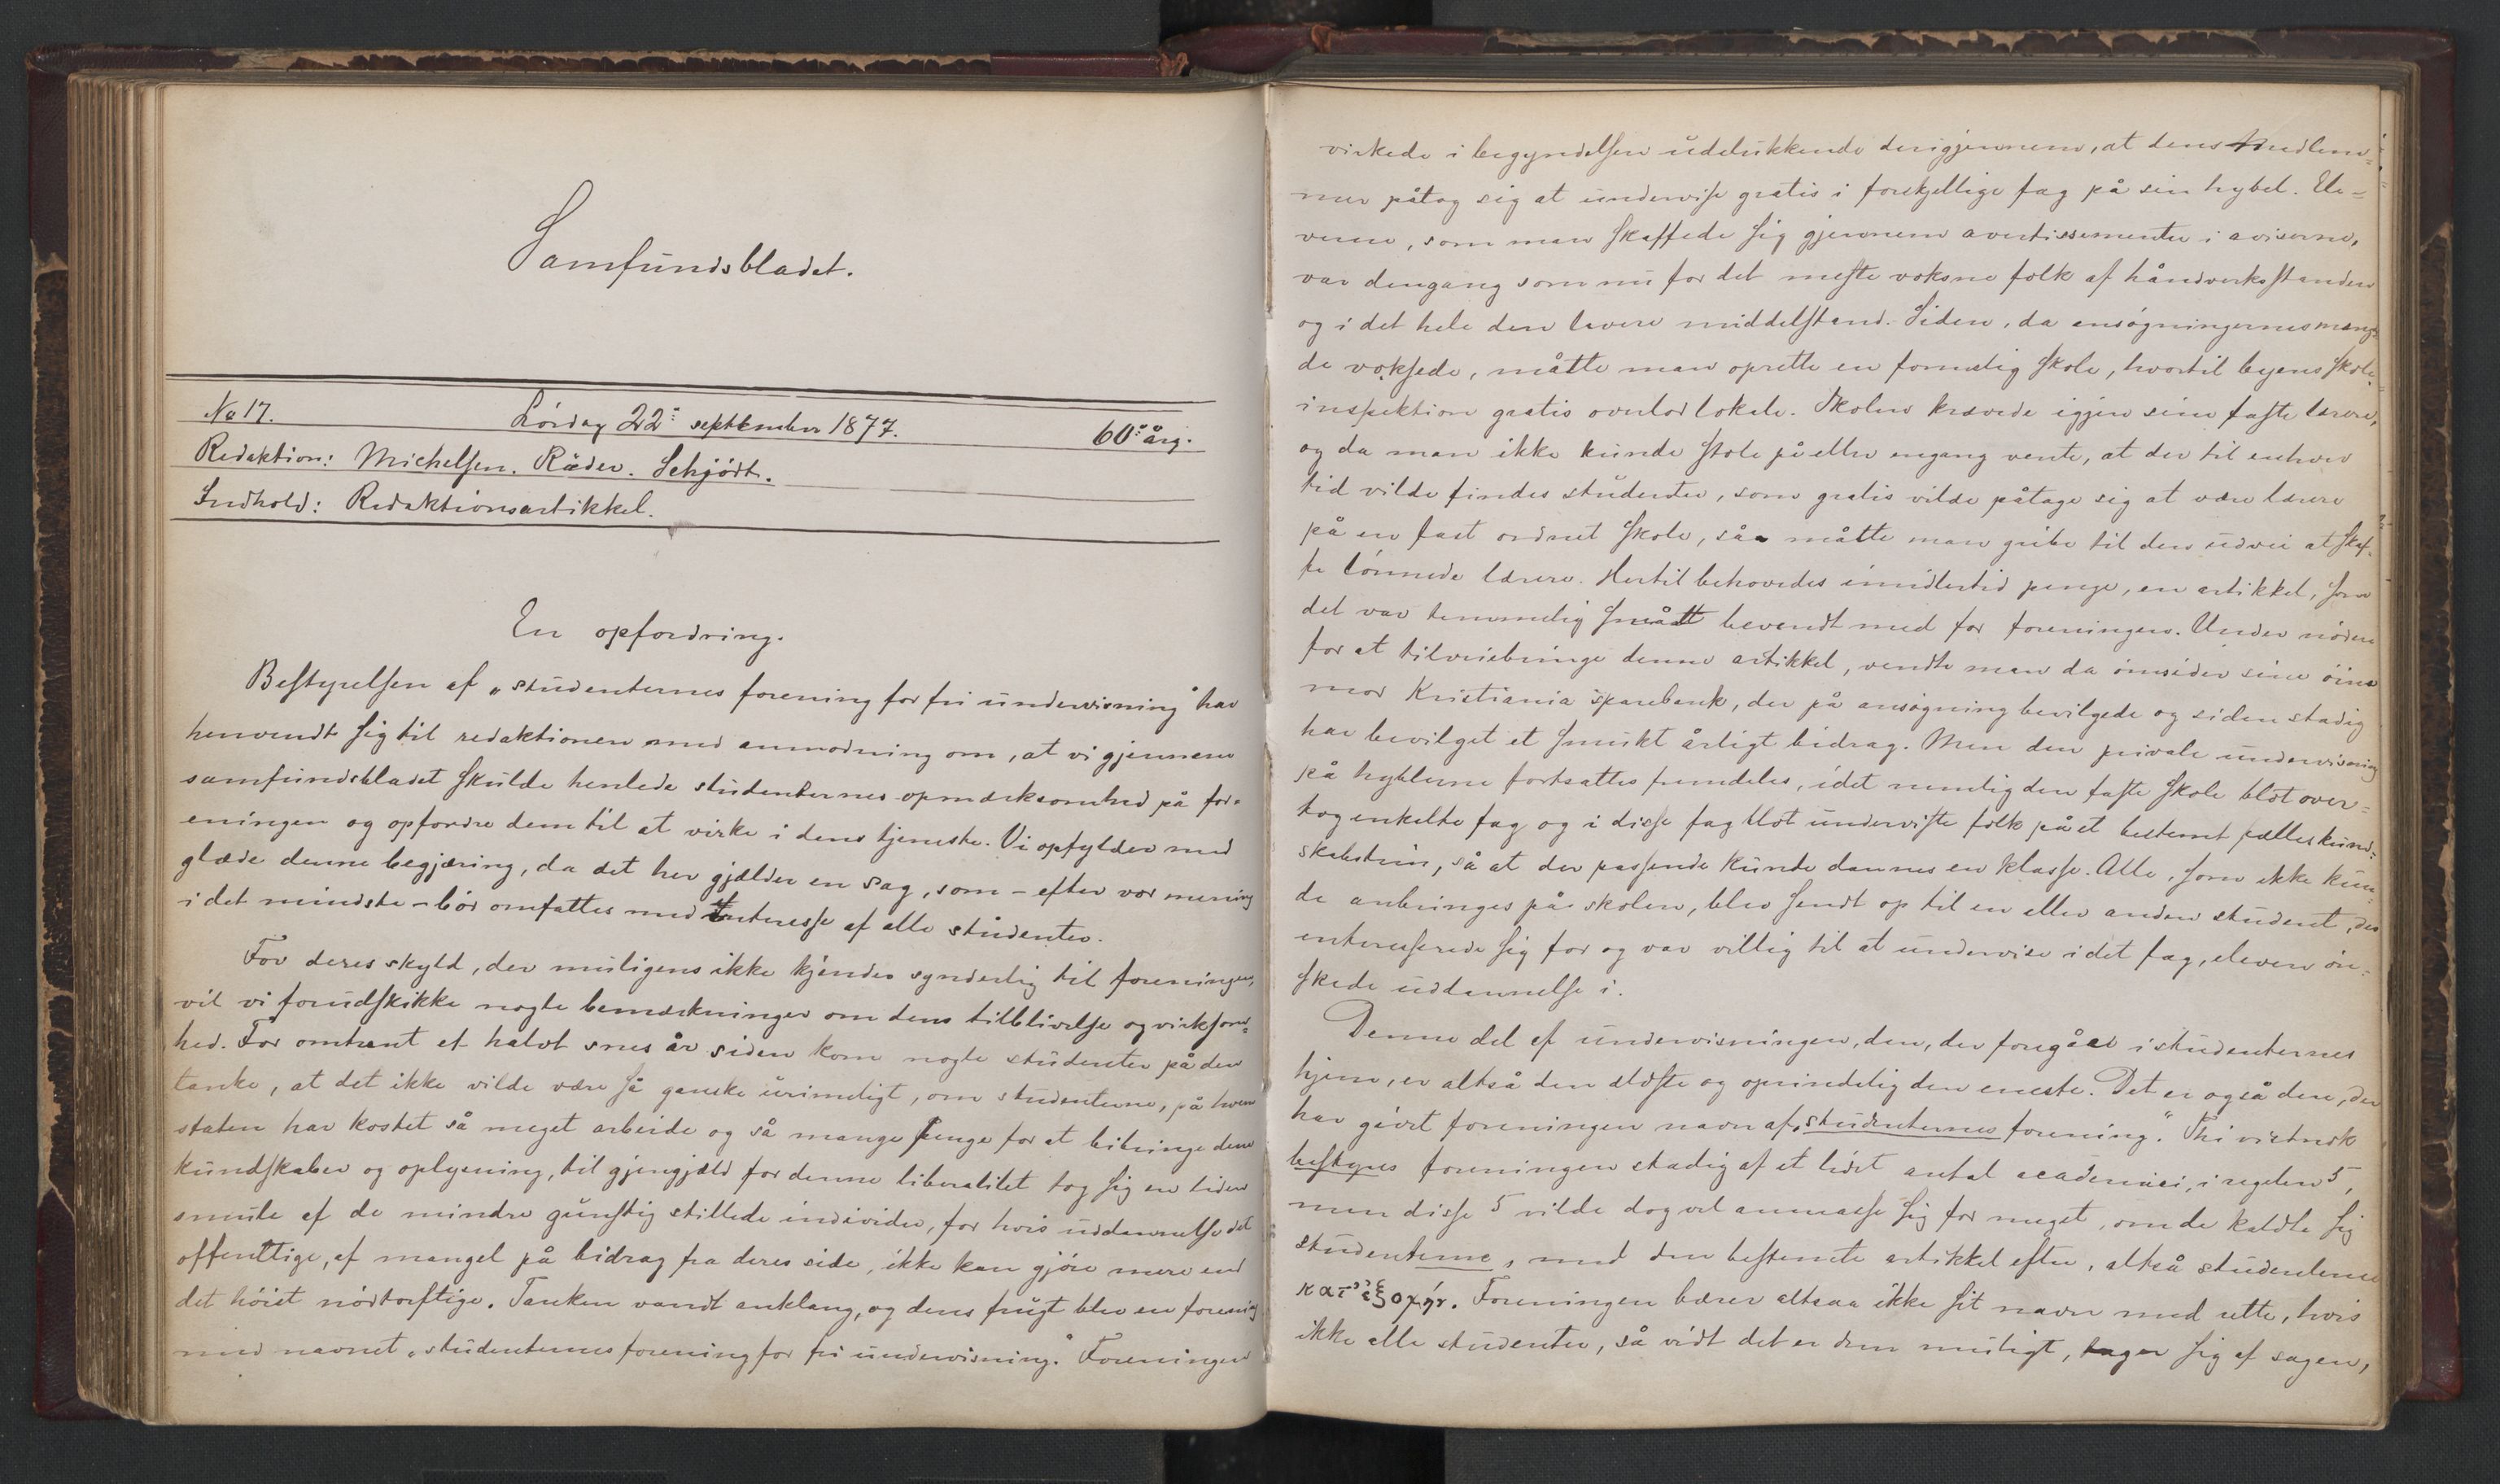 Samfundsbladet.
No 17. Lördag 22de september 1877. 60de årg.
Redaktion: Michelsen. Räder. Schjödt.
Indhold: Redaktionsartikkel.
En opfordring.
Bestyrelsen af „studenternes forening for fri undervisning“ har
henvendt sig til redaktionen med anmodning om, at vi gjennem
samfundsbladet skulde henlede studenternes opmærksomhed på for=
eningen og opfordre dem til at virke i dens tjeneste. Vi opfylder med
glæde denne begjæring, da det her gjælder en sag, som – efter vor mening
i det mindste – bör omfattes med interesse af alle studenter.
For deres skyld, der muligens ikke kjender synderlig til foreningen,
vil vi forudskikke nogle bemærkninger om dens tilblivelse og virksom=
hed. For omtrent et halvt snes år siden kom nogle studenter på den
tanke, at det ikke vilde være så ganske urimeligt, om studenterne, på hvem
staten har kostet så meget arbeide og så mange penge for at bibringe dem
kundskaber og oplysning, til gjengjæld for denne liberalitet tog sig en liden
smule af de mindre gunstig stillede individer, for hvis uddannelse det
offentlige, af mangel på bidrag fra deres side, ikke kan gjöre mere end
det höist nödtorftige. Tanken vandt anklang, og dens frugt blev en forening
med navnet „studenternes forening for fri undervisning.“ Foreningen
virkede i begyndelsen udelukkende derigjennem, at dens medlem=
mer påtog sig at undervise gratis i forskjellige fag på sin hybel. Ele=
verne, som man skaffede sig gjennem avertissementer i aviserne,
var dengang som nu for det meste voksne folk af håndverksstanden
og i det hele den lavere middelstand. Siden, da ansögningernes mæng=
de voksede, måtte man oprette en formelig skole, hvortil byens skole=
inspektion gratis overlod lokale. Skolen krævede igjen sine faste lærere,
og da man ikke kunde stole på eller engang vente, at der til enhver
tid vilde findes studenter, som gratis vilde påtage sig at være lærere
på en fast ordnet skole, så måtte man gribe til den udvei at skaf=
fe lönnede lærere. Hertil behövedes imidlertid penge, en artikkel, som
det var temmelig smått bevendt med for foreningen. Under nöden
for at tilveiebringe denne artikkel, vendte man da omsider sine öine
mod Kristiania sparebank, der på ansögning bevilgede og siden stadig
har bevilget et smukt årligt bidrag. Men den private undervisning
på hyblerne fortsattes fremdeles, idet nemlig den faste skole blot over=
tog enkelte fag og i disse fag blot underviste folk på et bestemt fælles kund=
skabstrin, så at der passende kunde dannes en klasse. Alle, som ikke kun=
de anbringes på skolen, blev sendt op til en eller anden student, der
interesserede sig for og var villig til at undervise i det fag, eleven ön=
skede uddannelse i.
Denne del af undervisningen, den, der foregåar i studenternes
hjem, er altså den ældste og oprindelig den eneste. Det er også den, der
har givet foreningen navn af „studenternes forening.“ Thi vistnok
bestyres foreningen stadig af et lidet antal academici, i regelen 5,
men disse 5 vilde dog vel anmasse sig for meget, om de kaldte sig
studenterne, med den bestemte artikkel efter, altså studenterne
κατ᾽ ἐξοχήν. Foreningen bærer altsaa ikke sit navn med rette, hvis
ikke alle studenter, så vidt det er dem muligt, tager sig af sagen,